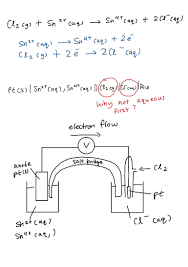 Cl₂(g) + Sn²⁺(aq) → Sn⁴⁺(aq) + 2Cl⁻(aq)
Sn²⁺(aq) → Sn⁴⁺(aq) + 2e⁻
Cl₂(g) + 2e⁻ → 2Cl⁻(aq)
Pt(s) | Sn²⁺(aq), Sn⁴⁺(aq) || Cl₂(g) | Cl⁻(aq) |
Why not aqueous
first?
electron flow
V
anode
Pt(s)
Salt Bridge
Cl₂
Pt
Sn²⁺(aq)
Sn⁴⁺(aq)
Cl⁻(aq)